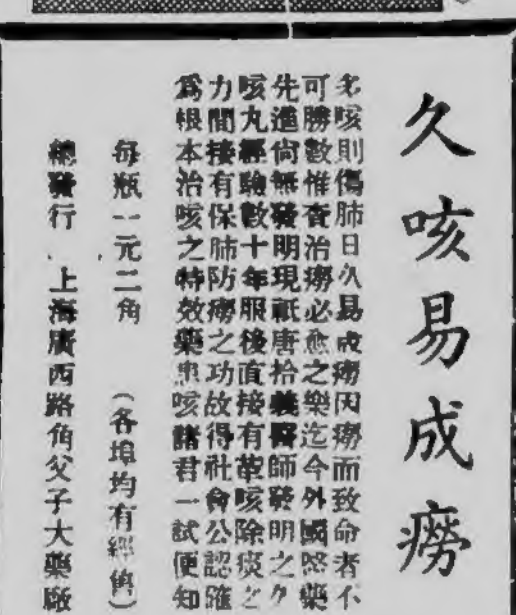 久咳易成癆
多咳則傷肺日久易成癆因癆而致命者不
可勝數惟查治癆必愈之藥迄今外國醫藥
先進尚無發明現祇唐拾義醫師發明之久
咳丸經驗數十年服後直接有革咳除痰之
力間接有保肺防癆之功故得社會公認確
爲根本治咳之特效藥患咳諸君一試便知
每瓶一元二角 （各埠均有經售）
總發行 上海廣西路角父子大藥廠